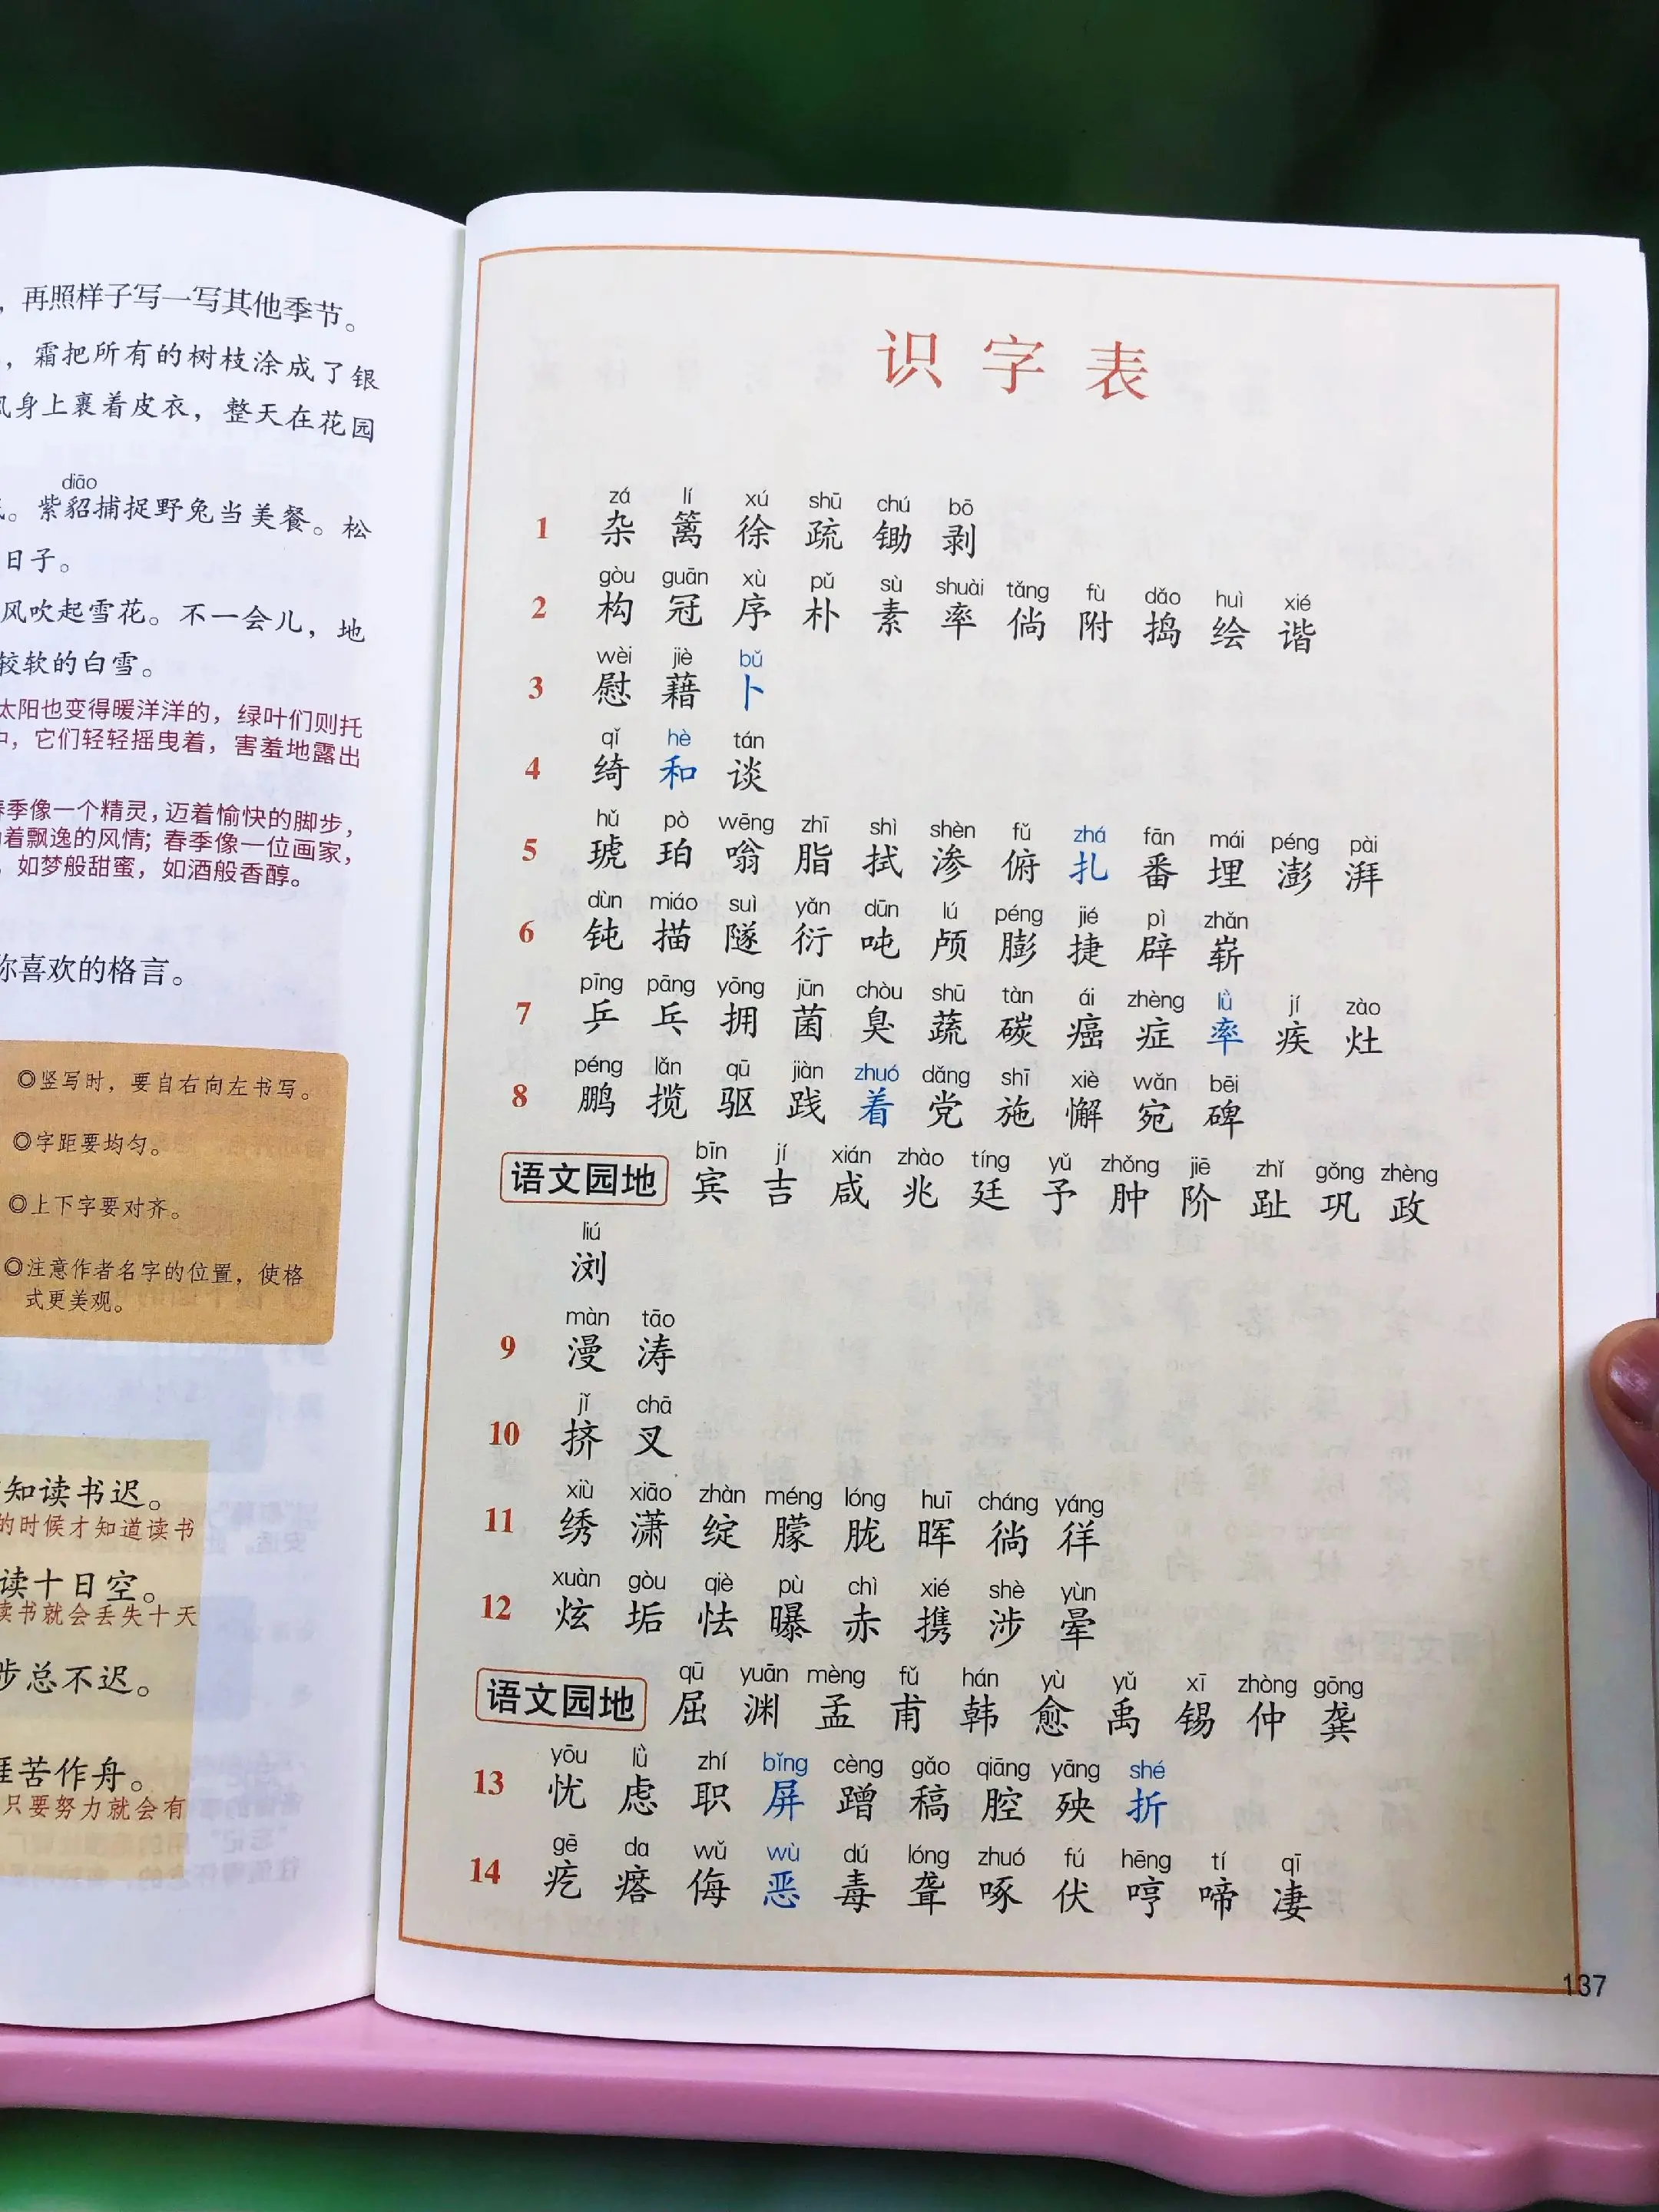 ，再照样子写一写其他季节。
，霜把所有的树枝涂成了银
风身上裹着皮衣，整天在花园
diāo
。紫貂捕捉野兔当美餐。松
日子。
风吹起雪花。不一会儿，地
较软的白雪。
太阳也变得暖洋洋的，绿叶们则托
中，它们轻轻摇曳着，害羞地露出
春季像一个精灵，迈着愉快的脚步，
着飘逸的风情；春季像一位画家，
，如梦般甜蜜，如酒般香醇。
你喜欢的格言。
◎竖写时，要自右向左书写。
◎字距要均匀。
◎上下字要对齐。
◎注意作者名字的位置，使格
式更美观。
知读书迟。
的时候才知道读书
读十日空。
读书就会丢失十天
步总不迟。
涯苦作舟。
只要努力就会有
识字表
zá lí xú shū chú bō
1 杂 篱 徐 疏 锄 剥
gòu guān xù pǔ sù shuài tǎng fù dǎo huì xié
2 构 冠 序 朴 素 率 倘 附 捣 绘 谐
wèi jiè bǔ
3 慰 藉 卜
qǐ hè tán
4 绮 和 谈
hǔ pò wēng zhī shì shèn fǔ zhá fān mái péng pài
5 琥 珀 嗡 脂 拭 渗 俯 扎 番 埋 澎 湃
dùn miáo suì yǎn dūn lú péng jié pì zhǎn
6 钝 描 隧 衍 吨 颅 膨 捷 辟 崭
pīng pāng yōng jūn chòu shū tàn ái zhèng lǜ jí zào
7 乒 乓 拥 菌 臭 蔬 碳 癌 症 率 疾 灶
péng lǎn qū jiàn zhuó dǎng shī xiè wǎn bēi
8 鹏 揽 驱 践 着 党 施 懈 宛 碑
bīn jí xián zhào tíng yǔ zhǒng jiē zhǐ gǒng zhèng
语文园地 宾 吉 咸 兆 廷 予 肿 阶 趾 巩 政
liú
浏
màn tāo
9 漫 涛
jǐ chā
10 挤 叉
xiù xiāo zhàn méng lóng huī cháng yáng
11 绣 潇 绽 朦 胧 晖 徜 徉
xuàn gòu qiè pù chì xié shè yùn
12 炫 垢 怯 曝 赤 携 涉 晕
qū yuān mèng fǔ hán yù yǔ xī zhòng gōng
语文园地 屈 渊 孟 甫 韩 愈 禹 锡 仲 龚
yōu lǜ zhí bǐng cèng gǎo qiāng yāng shé
13 忧 虑 职 屏 蹭 稿 腔 殃 折
gē da wǔ wù dú lóng zhuó fú hēng tí qī
14 疙 瘩 侮 恶 毒 聋 啄 伏 哼 啼 凄
137